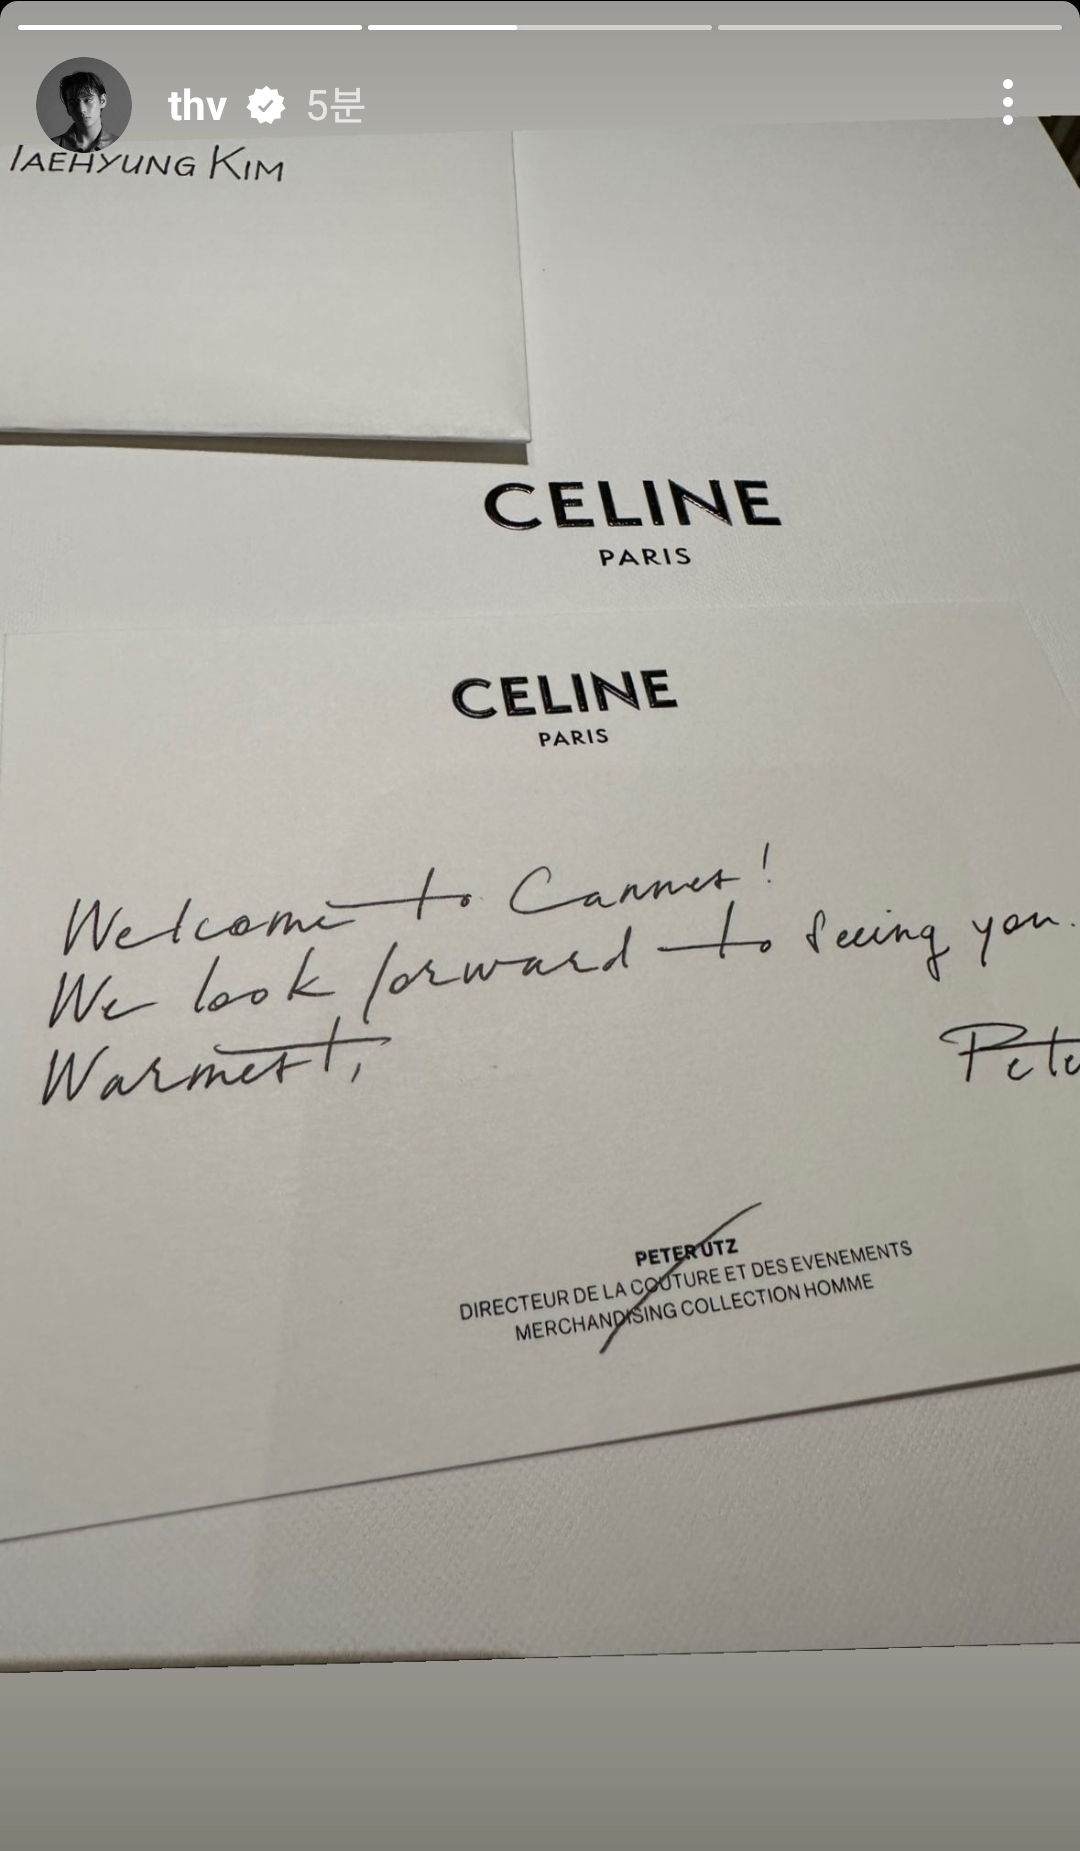 thv 5분
TAEHYUNG KIM
CELINE
PARIS
CELINE
PARIS
Welcome to Cannes!
We look forward to seeing you.
Warmest,
Pete
PETER UTZ
DIRECTEUR DE LA COUTURE ET DES EVENEMENTS
MERCHANDISING COLLECTION HOMME